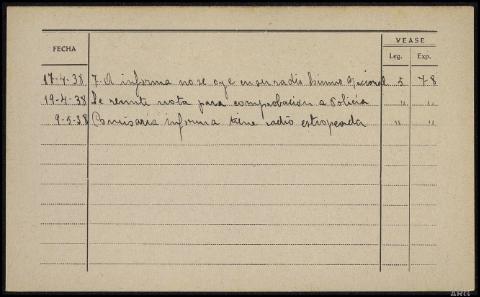 VEASE
FECHA Leg. Exp.
17-4-38 7-A informa no se oye en su radio himno Nacional 5 7-8
19-4-38 Se remite nota para comprobación a Policia " "
9-5-38 Comisaria informa tiene radio estropeada " "